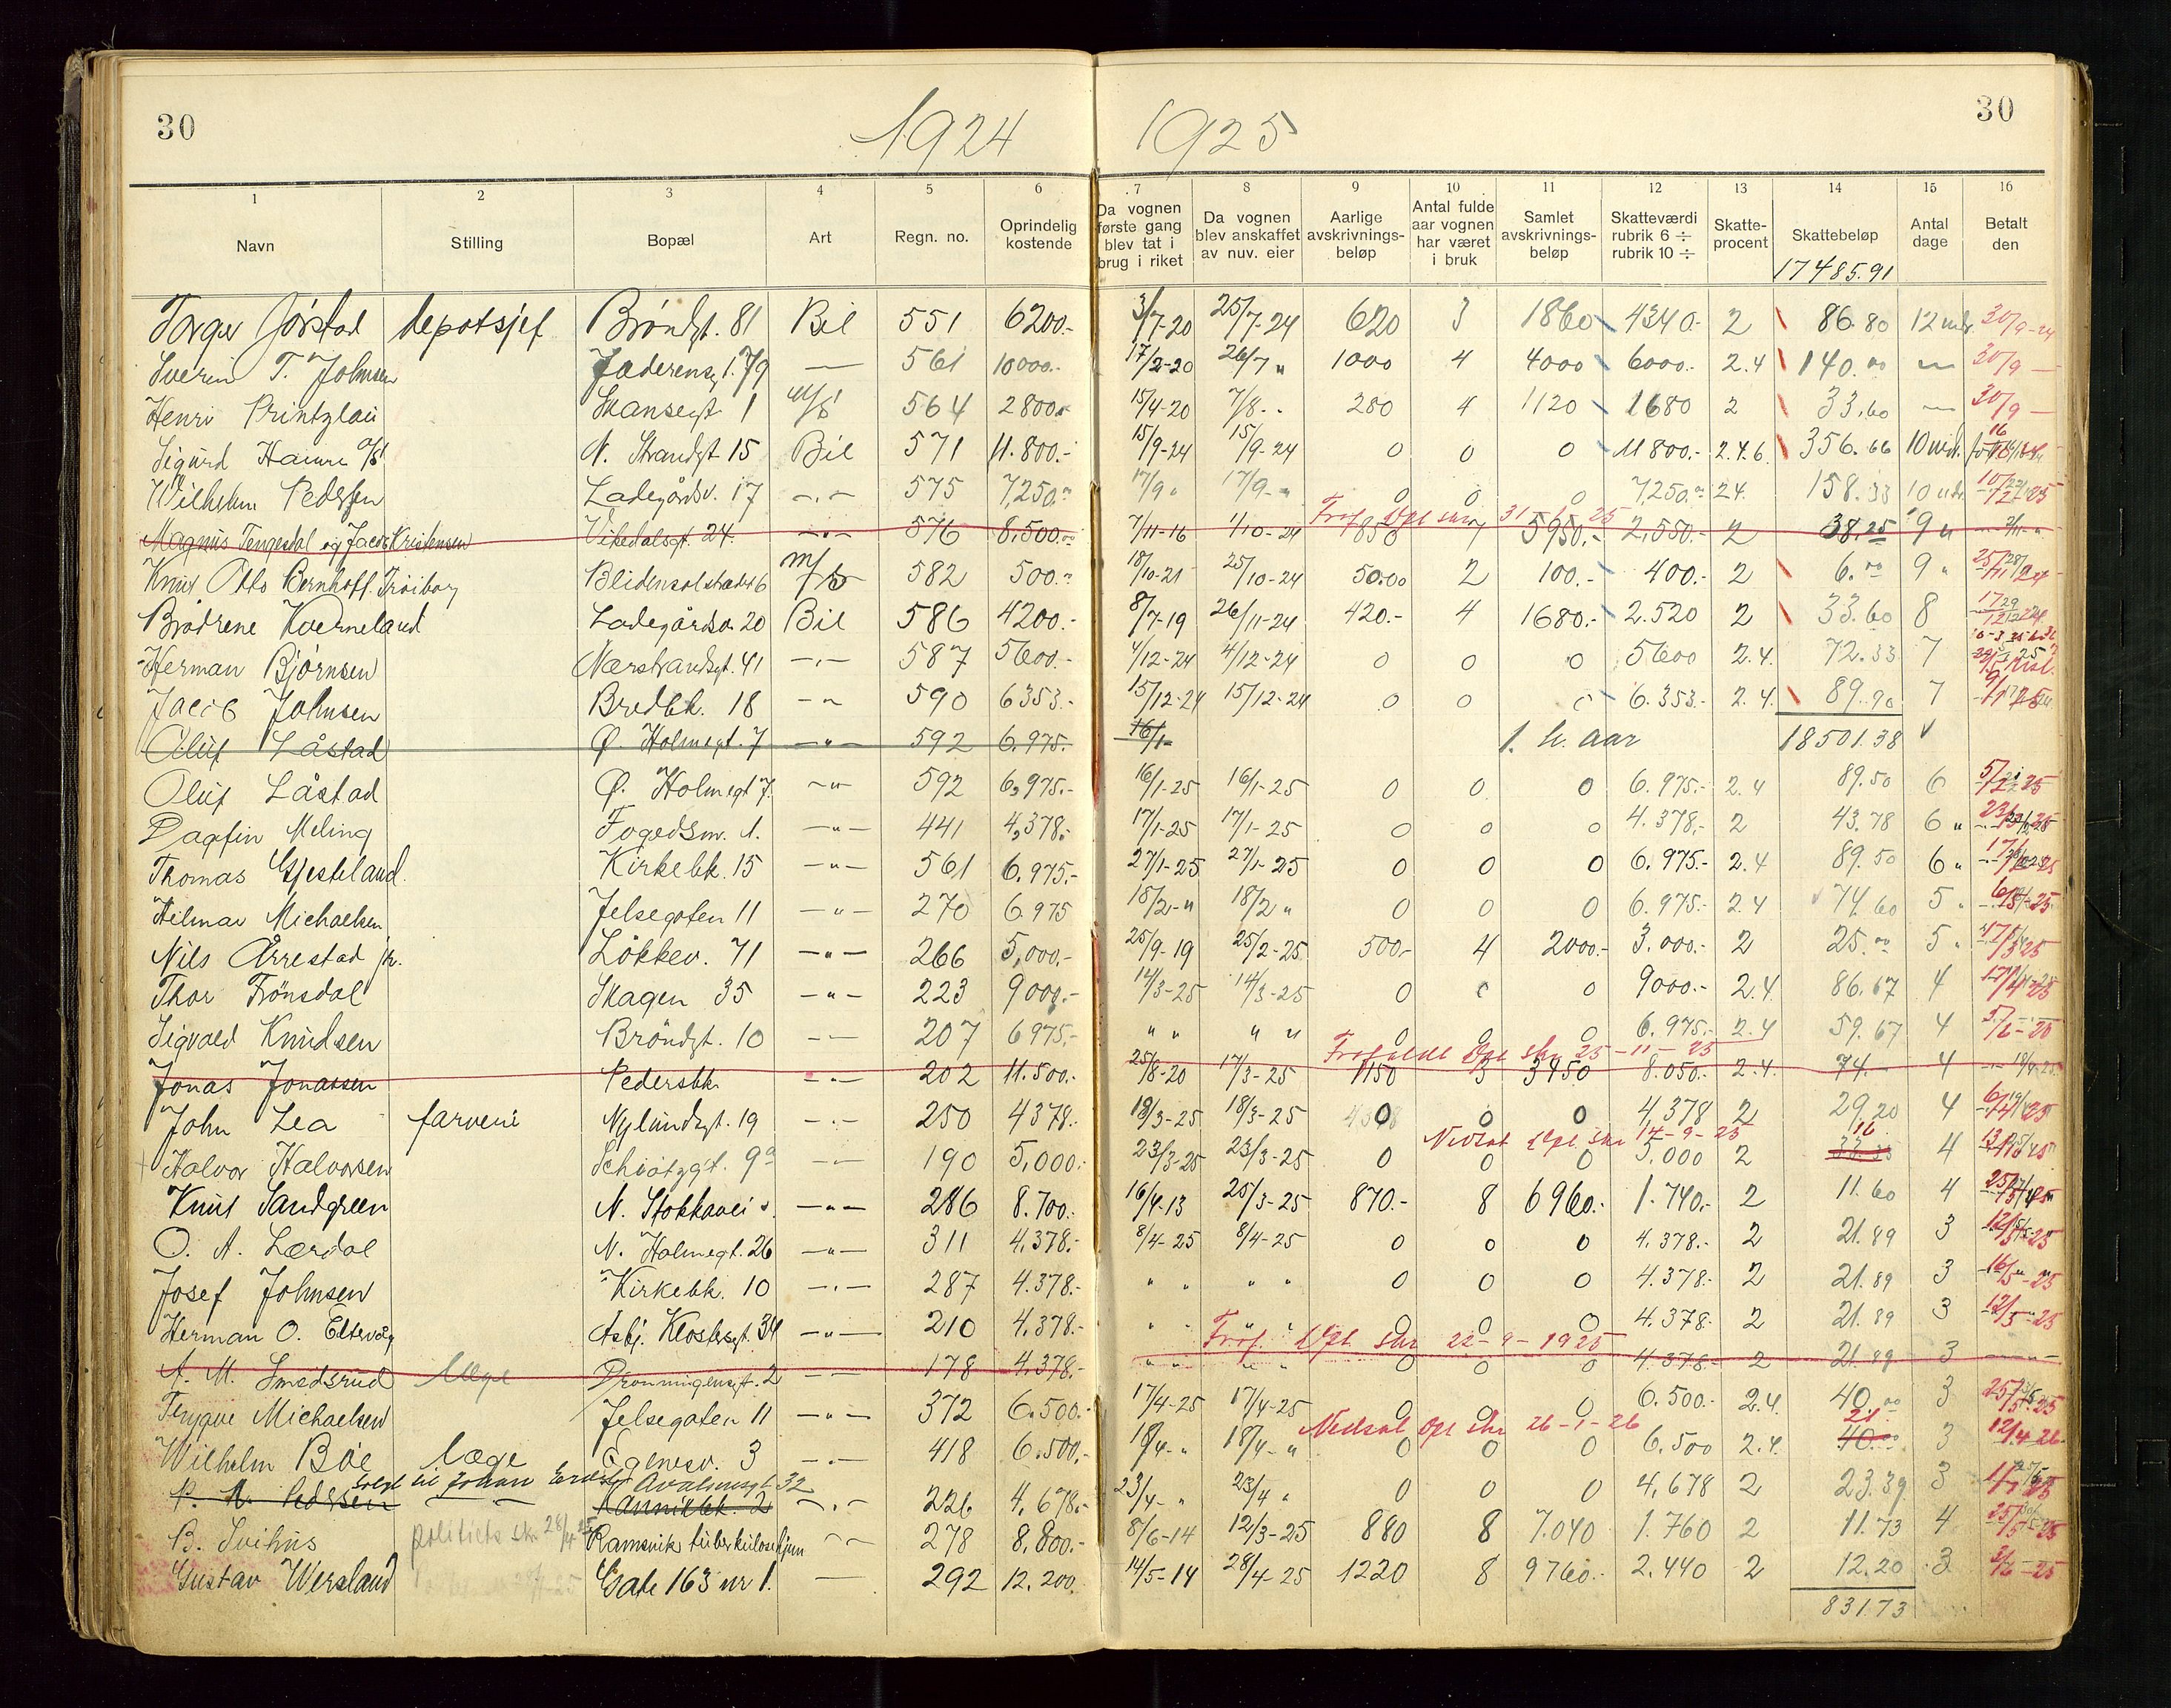 30 1924 1925 30
1 2 3 4 5 6 7 8 9 10 11 12 13 14 15 16
Navn Stilling Bopæl Art Regn. no. Oprindelig kostende Da vognen første gang blev tat i brug i riket Da vognen blev anskaffet av nuv. eier Aarlige avskrivnings-beløp Antal fulde aar vognen har været i bruk Samlet avskrivnings-beløp Skatteværdi rubrik 6 ÷ rubrik 10 ÷ Skatte-procent Skattebeløp Antal dage Betalt den
17485.91
Torger Gjørstad depotsjef Bröndgt. 81 Bil 551 6200.- 3/7-20 25/7-24 620 3 1860 4340.- 2 86.80 12 mdr. 30/9-24
Sverin T. Johnsen Jaderensg. 1.79 — 561 10000.- 17/2-20 26/7 " 1000 4 4000 6000.- 2.4 140.00 — 30/9 —
Henri Printzlau Skansegt 1 m/b 564 2800.- 15/4-20 7/8 - . 280 4 1120 1680 2 33.60 — 30/9 —
Sigurd Hauure A/S N. Strandgt 15 Bil 571 11.800.- 15/9-24 15/9-24 0 0 0 11800.- 2.4.6. 356.66 10 mdr.
Wilhelm Pedersen Ladegårdsv. 17 -.- 575 7,250.00 17/9 " 17/9-" 0 0 0 7250.00 2.4. 158.33 10 mdr.
Fraf. Opl skr 31 25
Magnus Tengesdal og Jacob Kristensen Vikedalsgt. 24. -"- 576 8,500.00 7/11-16 1/10-24 850 7 5950.- 2,550.- 2 38.25 9 "
Knut Otto Bernhoff Tröiborg Blidensolstrædet 6 m/b 582 500.- 18/10-21 25/10-24 50.00 2 100.- 400.- 2 6.00 9 "
Brödrene Kverneland Ladegårdsv. 20 Bil 586 4200.- 8/7-19 26/11-24 420.- 4 1680.- 2.520 2 33.60 8
Herman Bjørnsen Nærstrandsgt. 41 -.- 587 5600.- 4/12-24 4/12-24 0 0 0 5600 2.4. 72.33 7
Jacob Johnsen Bredbk. 18 -"- 590 6353.- 15/12-24 15/12-24 0 0 0 6.353.- 2.4. 89.90 7
Oluf Låstad Ø. Holmegt. 7 -"- 592 6.975.- 16/1- 1. h. aar 18501.38
Oluf Låstad Ø. Holmegt 7. -"- 592 6,975.- 16/1-25 16/1-25 0 0 0 6.975.- 2.4 89.50 6
Dagfin Meling Fogedsm. 1. -"- 441 4,378.- 17/1-25 17/1-25 0 0 0 4.378.- 2 43.78 6 "
Thomas Gjesteland. Kirkebk. 15 -"- 561 6.975.- 27/1-25 27/1-25 0 0 0 6.975.- 2.4 89.50 6 "
Hilmar Michaelsen Jelsegaten 11 -"- 270 6.975 18/2-" 18/2 " 0 0 0 6.975.- 2.4 74.60 5 "
Nils Årrestad jr. Løkkev. 71 -"- 266 5,000.- 25/9-19 25/2-25 500.- 4 2000.- 3.000.- 2 25.00 5 "
Thor Trönsdal Skagen 35 -"- 223 9000.- 14/3-25 14/3-25 0 0 0 9000.- 2.4. 86.67 4
Sigvald Knudsen Bröndgt. 10 -"- 207 6975.- " " " " 0 0 0 6.975.- 2.4 59.67 4
Fraf. Opl skr 25-11-25
Jonas Jonassen Pedersbk. -"- 202 11.500.- 25/8-20 17/3-25 1150 3 3450 8.050.- 2.4. 74.- 4
John Lea farveri Nylundsgt. 19 -.- 250 4378.- 18/3-25 18/3-25 0 0 0 4,378 2 29.20 4
Nedsat Opl. skr 14-9-25
Halvor Halvorsen Schiötzgt. 9a -"- 190 5,000.- 23/3-25 23/3-25 0 0 0 5.000 2 33.33 16 4
Knut Sandgreen N. Stokkavei -"- 286 8.700.- 16/4-13 25/3-25 870.- 8 6960.- 1.740.- 2 11.60 4
O. A. Lærdal N. Holmegt. 26 -"- 311 4,378.- 8/4-25 8/4-25 0 0 0 4.378.- 2 21.89 3
Josef Johnsen Kirkebk. 10 -.- 287 4.378.- " " " " 0 0 0 4.378.- 2 21.89 3
Herman O. Eltervåg Asbj. Klostersgt. 34 -"- 210 4,378.- " " " " 0 0 0 4.378.- 2 21.89 3 12/5-25
Fraf. Opl skr 22-9-1925
A. M. Smedsrud Læge Dronningensgt. 2 -"- 178 4.378.- " " " " 0 0 0 4.378.- 2 21.89 3
Trygve Michaelsen Jelsegaten 11 -"- 372 6.500.- 17/4-25 17/4-25 0 0 0 6.500.- 2.4. 40.00 3
Nedsat Opl skr 26-1-26
Wilhelm Böe læge Egenesv. 3 -.- 418 6.500.- 18/4-" 18/4-" 0 0 0 6.500 2.4. 40.00 21 3
solgt til Johan Avaldsnesgt. 32
P. A. Pedersen Kannikbk. 2 -.- 226 4,678.- 23/4-" 23/4 " 0 0 0 4,678 2 23.39 3
B. Svihus politiets skr. 28/4 25 Ramsvik tuberkulosehjem -"- 278 8,800.- 8/6-14 12/3-25 880 8 7.040 1.760 2 11.73 4
Gustav Wersland Gate 163 nr 1. — 292 12.200. 14/5-14 28/4-25 1220 8 9760.- 2.440 2 12.20 3
831.73